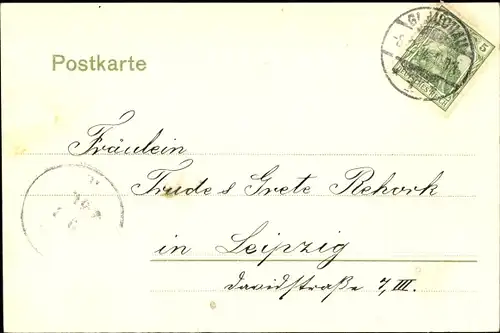 Postkarte
5
Fräulein
Trude & Grete Rehork
in Leipzig
Davidstraße 7, III.